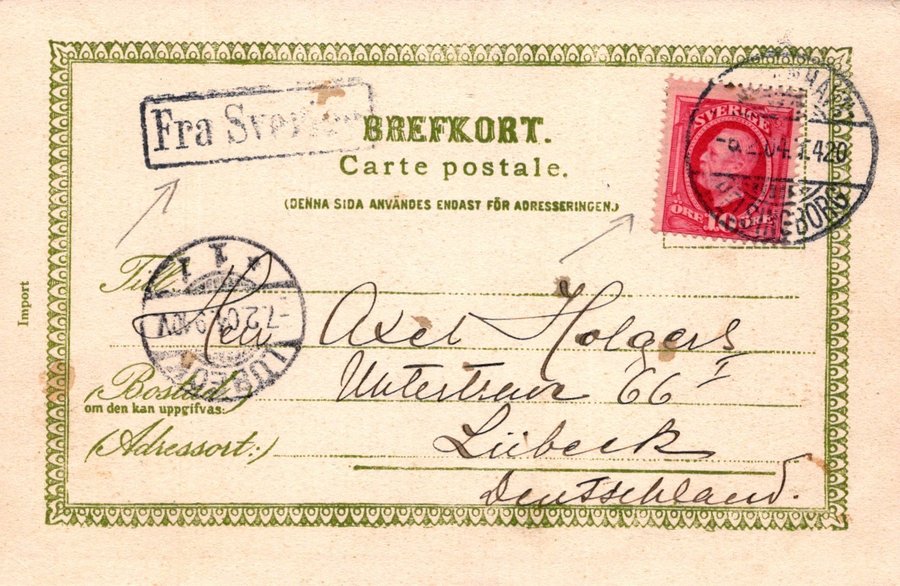 Fra Sverige
BREFKORT.
Carte postale.
(DENNA SIDA ANVÄNDES ENDAST FÖR ADRESSERINGEN.)
SVERIGE
ÖRE 10 ÖRE
Till
Herr Axel Holgers
Bostad
om den kan uppgifvas:
Untertrave 66 I
(Adressort:)
Lübeck
Deutschland.
LÜBECK
7.2.04.9-10V
Import